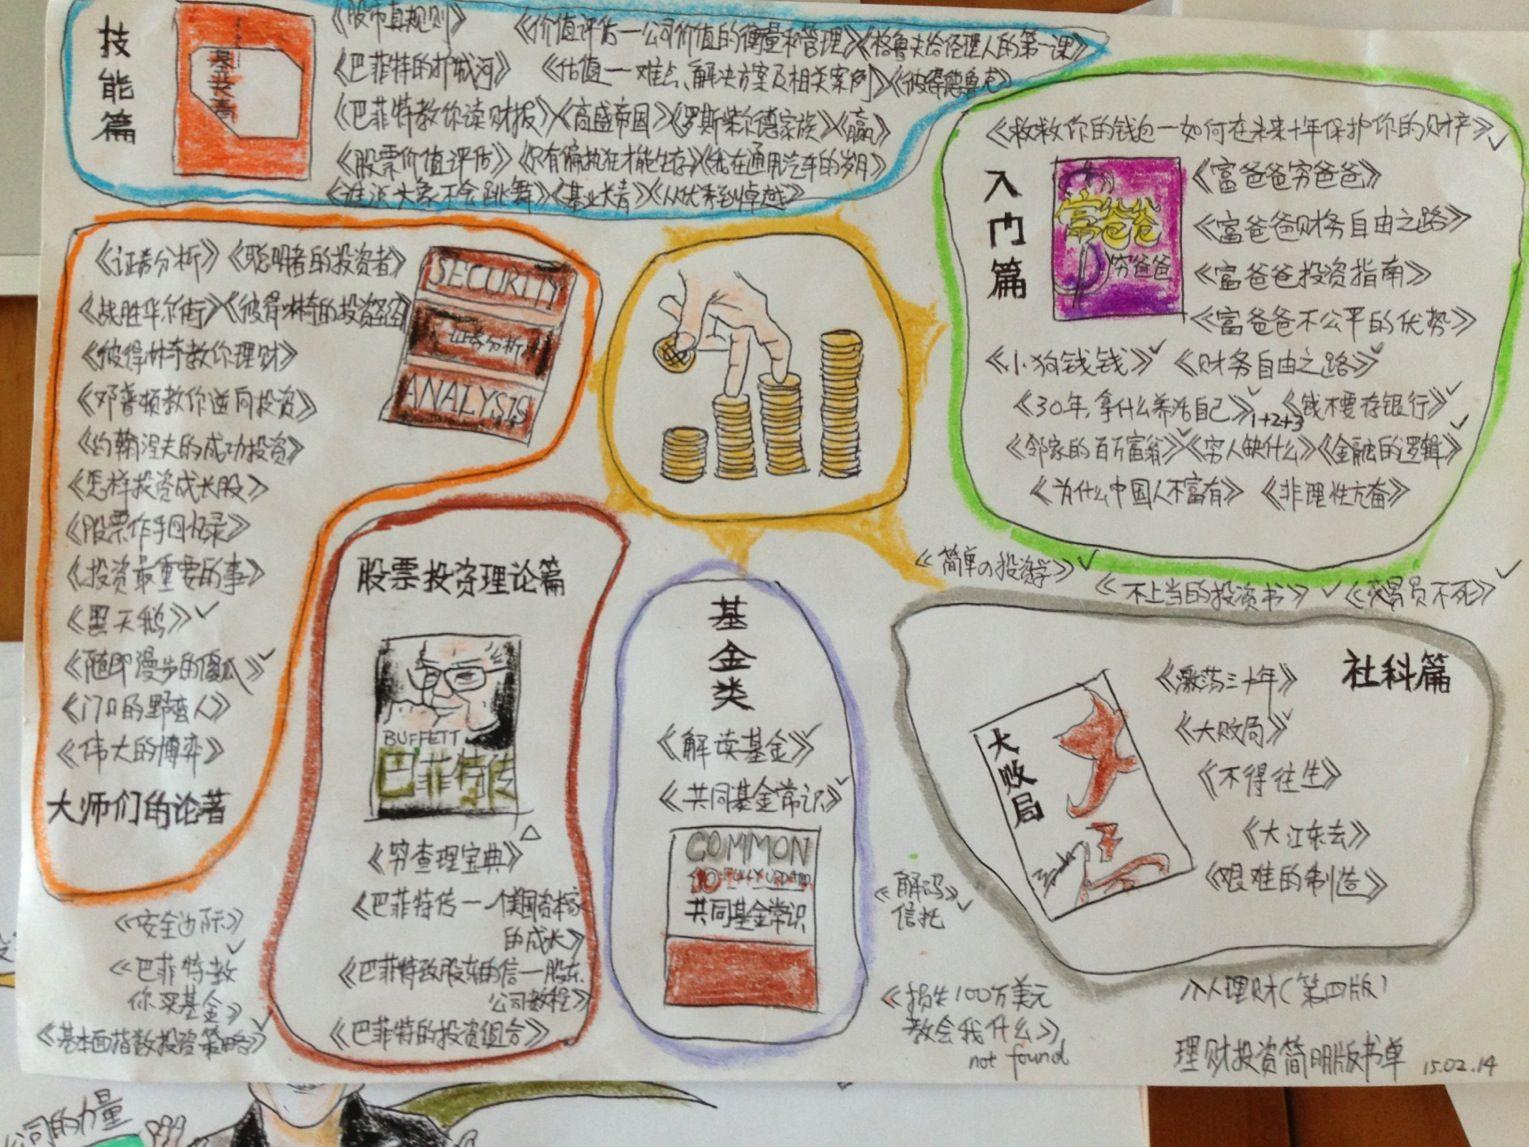 技能篇
基业长青
《股市真规则》
《价值评估—公司价值的衡量和管理》《格鲁夫给经理人的第一课》
《巴菲特的护城河》
《估值——难点、解决方案及相关案例》《彼得德鲁克》
《巴菲特教你读财报》《高盛帝国》《罗斯柴尔德家族》《赢》
《股票价值评估》《只有偏执狂才能生存》《我在通用汽车的岁月》
《谁说大象不会跳舞》《基业长青》《从优秀到卓越》
入门篇
《救救你的钱包—如何在未来十年保护你的财产》✓
富爸爸
穷爸爸
《富爸爸穷爸爸》
《富爸爸财务自由之路》
《富爸爸投资指南》
《富爸爸不公平的优势》
《小狗钱钱》✓ 《财务自由之路》✓
《30年,拿什么养活自己》✓1+2+3 《钱不要存银行》✓
《邻家的百万富翁》✓《穷人缺什么》《金融的逻辑》✓
《为什么中国人不富有》 《非理性亢奋》
《简单の投资学》✓
《不上当的投资书》✓ 《交易员不死》✓
《证券分析》《聪明者的投资者》
《战胜华尔街》《彼得林奇的投资
《彼得林奇教你理财》
《邓普顿教你逆向投资》
《约翰涅夫的成功投资》
《怎样投资成长股》
《股票作手回忆录》
《投资最重要的事》
《黑天鹅》✓
《随即漫步的傻瓜》✓
《门口的野蛮人》
《伟大的博弈》
大师们的论著
SECURITY
证券分析
ANALYSIS
《安全边际》
《巴菲特教
你买基金》✓
《基本面指数投资策略》✓
股票投资理论篇
BUFFETT
巴菲特传
《穷查理宝典》△
《巴菲特传—一个美国资本家
的成长》
《巴菲特致股东的信—股东
公司教程》
《巴菲特的投资组合》
基金类
《解读基金》✓
《共同基金常识》✓
COMMON
10 FULLY UPDATED
共同基金常识
社科篇
大败局
《激荡三十年》
《大败局》✓
《不得往生》
《大江东去》
《艰难的制造》
《解码》
信托✓
《损失100万美元
教会我什么》
not found
入人理财(第四版)
理财投资简明版书单 15.02.14
公司的力量